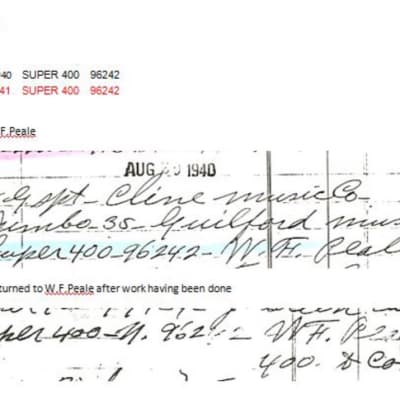 940 SUPER 400 96242
41 SUPER 400 96242
F.Peale
AUG 1940
Spt - Cline music Co
Jimbo - 35 - Guilford mus
Super 400 - 96242 - W. H. Peal
turned to W.F.Peale after work having been done
per 400 - N. 962 W H. Pea
400. & Co